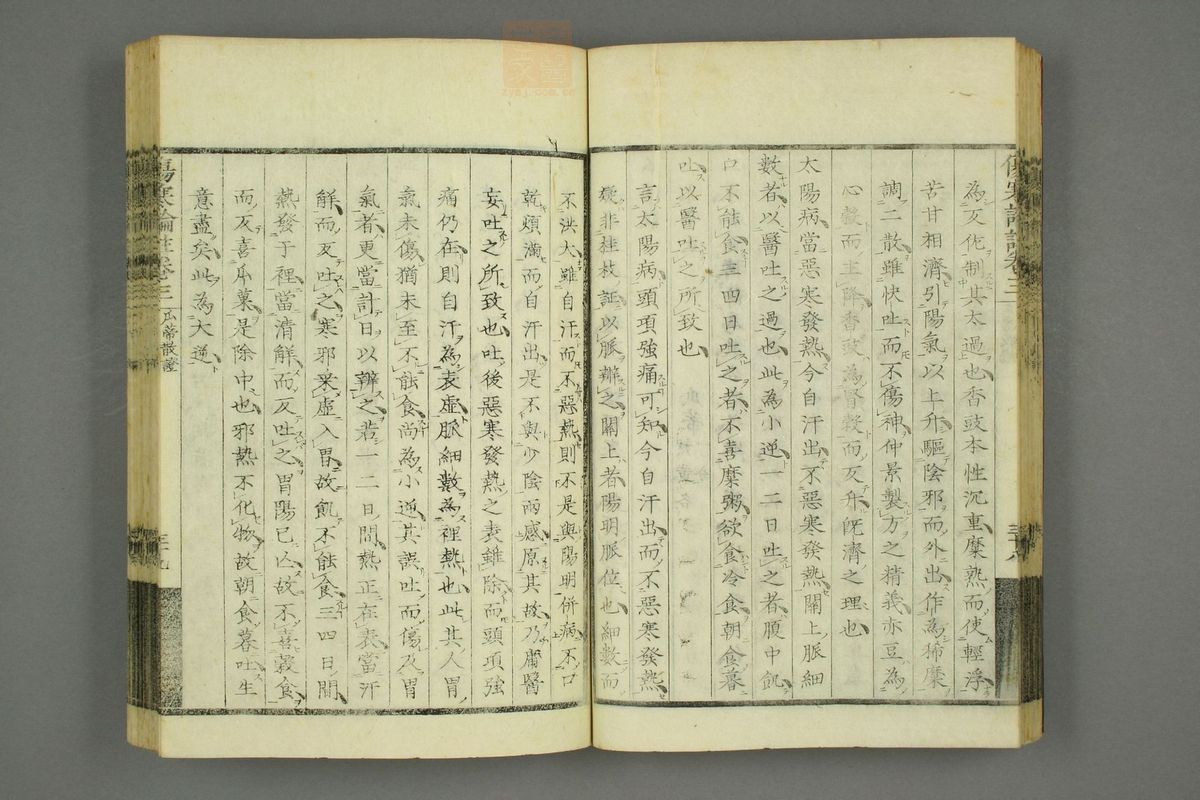 為反佐制其太過也香豉本性沉重糜熟而使輕浮
苦甘相濟引陽氣以上升驅陰邪而外出作為稀糜
調二散雖快吐而不傷神仲景製方之精義赤豆為
心穀而主降香豉為腎穀而反升既濟之理也
太陽病當惡寒發熱今自汗出不惡寒發熱關上脈細
數者以醫吐之過也此為小逆一二日吐之者腹中飢
口不能食三四日吐之者不喜糜粥欲食冷食朝食暮
吐以醫吐之所致也
言太陽病頭項強痛可知今自汗出而不惡寒發熱
疑非桂枝証以脈辨之關上者陽明脈位也細數而
不洪大雖自汗而不惡熱則不是與陽明併病不口
乾煩滿而自汗出是不與少陰兩感原其故乃庸醫
妄吐之所致也吐後惡寒發熱之表雖除而頭項強
痛仍在則自汗為表虛脈細數為裡熱也此其人胃
氣未傷猶未至不能食尚為小逆其誤吐而傷及胃
氣者更當計日以辨之若一二日間熱正在表當汗
解而反吐之寒邪乘虛入胃故飢不能食三四日間
熱發于裡當清解而反吐之胃陽已亡故不喜穀食
而反喜瓜菓是除中也邪熱不化物故朝食暮吐生
意盡矣此為大逆
傷寒論註卷三
瓜蒂散證
三十九